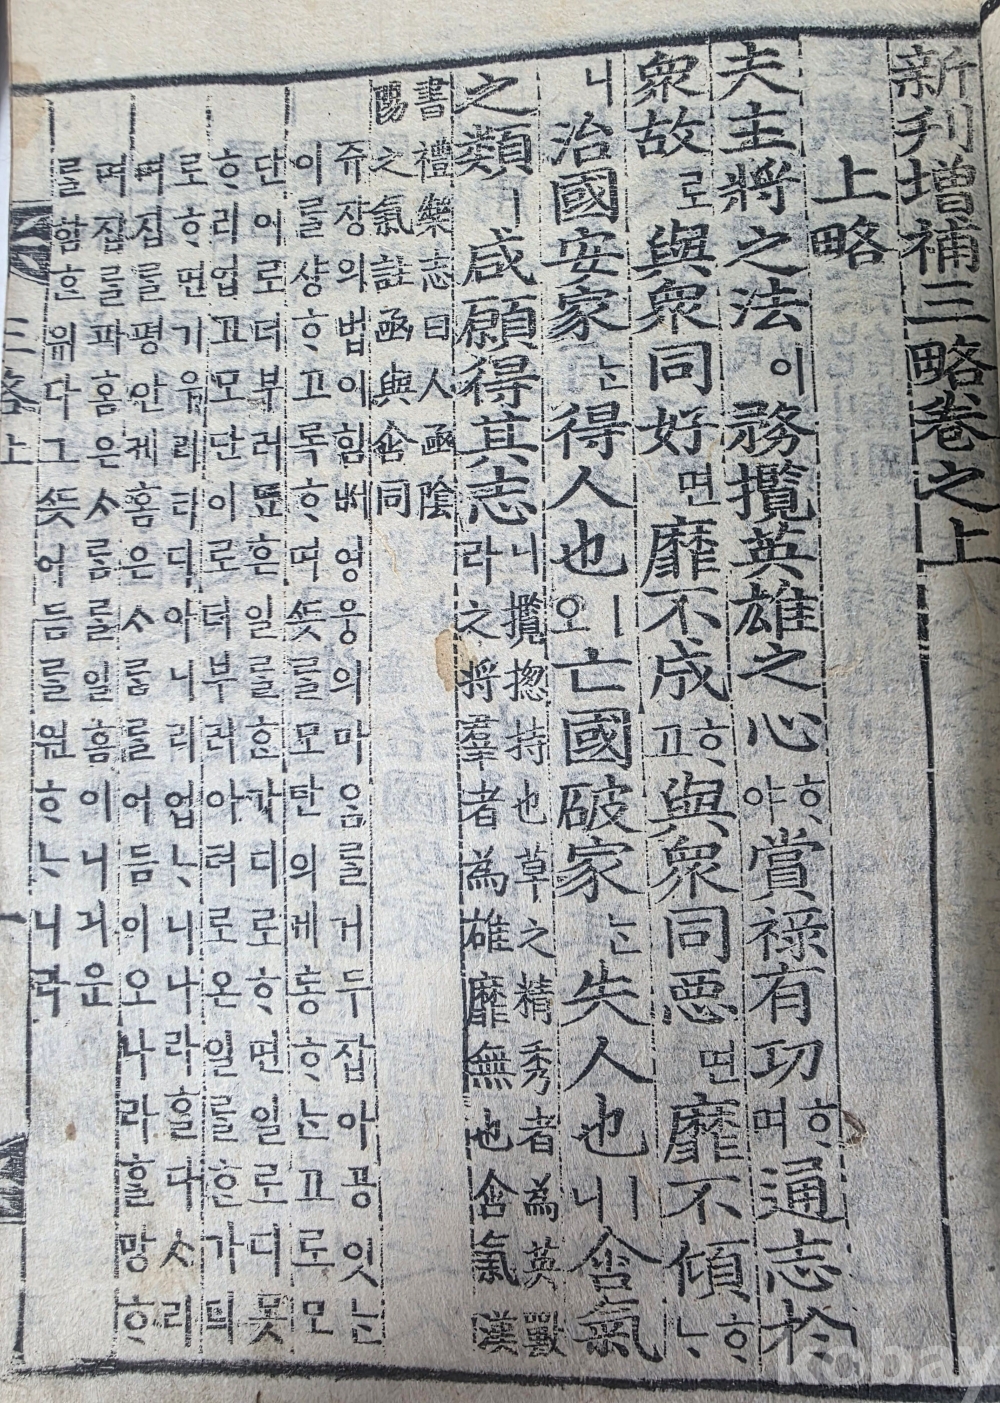 新刋增補三略卷之上
上略
夫主將之法이務攬英雄之心ᄒᆞ야賞祿有功ᄒᆞ며通志於
衆故로與衆同好면靡不成ᄒᆞ고與衆同惡면靡不傾ᄒᆞᄂᆞ
니治國安家ᄂᆞᆫ得人也ㅣ오亡國破家ᄂᆞᆫ失人也ㅣ니含氣
之類ㅣ咸願得其志니라
攬揔持也草之精秀者為英獸
之將羣者為雄靡無也含氣漢
書禮樂志曰人函陰
陽之氣註函與含同
쥬쟝의법이힘ᄡᅥ영웅의마음를거두잡아공잇ᄂᆞᆫ
이를샹ᄒᆞ고록ᄒᆞ며ᄯᅳᆺ를모단의게통ᄒᆞᄂᆞᆫ고로모
단이로더부러됴흔일를ᄒᆞᆫ가디로ᄒᆞ면일로디못
ᄒᆞ리업고모단이로더부러아쳐로온일를ᄒᆞᆫ가디
로ᄒᆞ면기우러디디아니리업ᄂᆞ니나라흘다ᄉᆞ리
며집를평안케홈은ᄉᆞᄅᆞᆷ를어듬이오나라흘망ᄒᆞ
며집를파홈은ᄉᆞᄅᆞᆷ를일흠이니긔운
를함ᄒᆞᆫ다그ᄯᅳᆺ어듬를원ᄒᆞᄂᆞ니라
三畧上
一
kobay